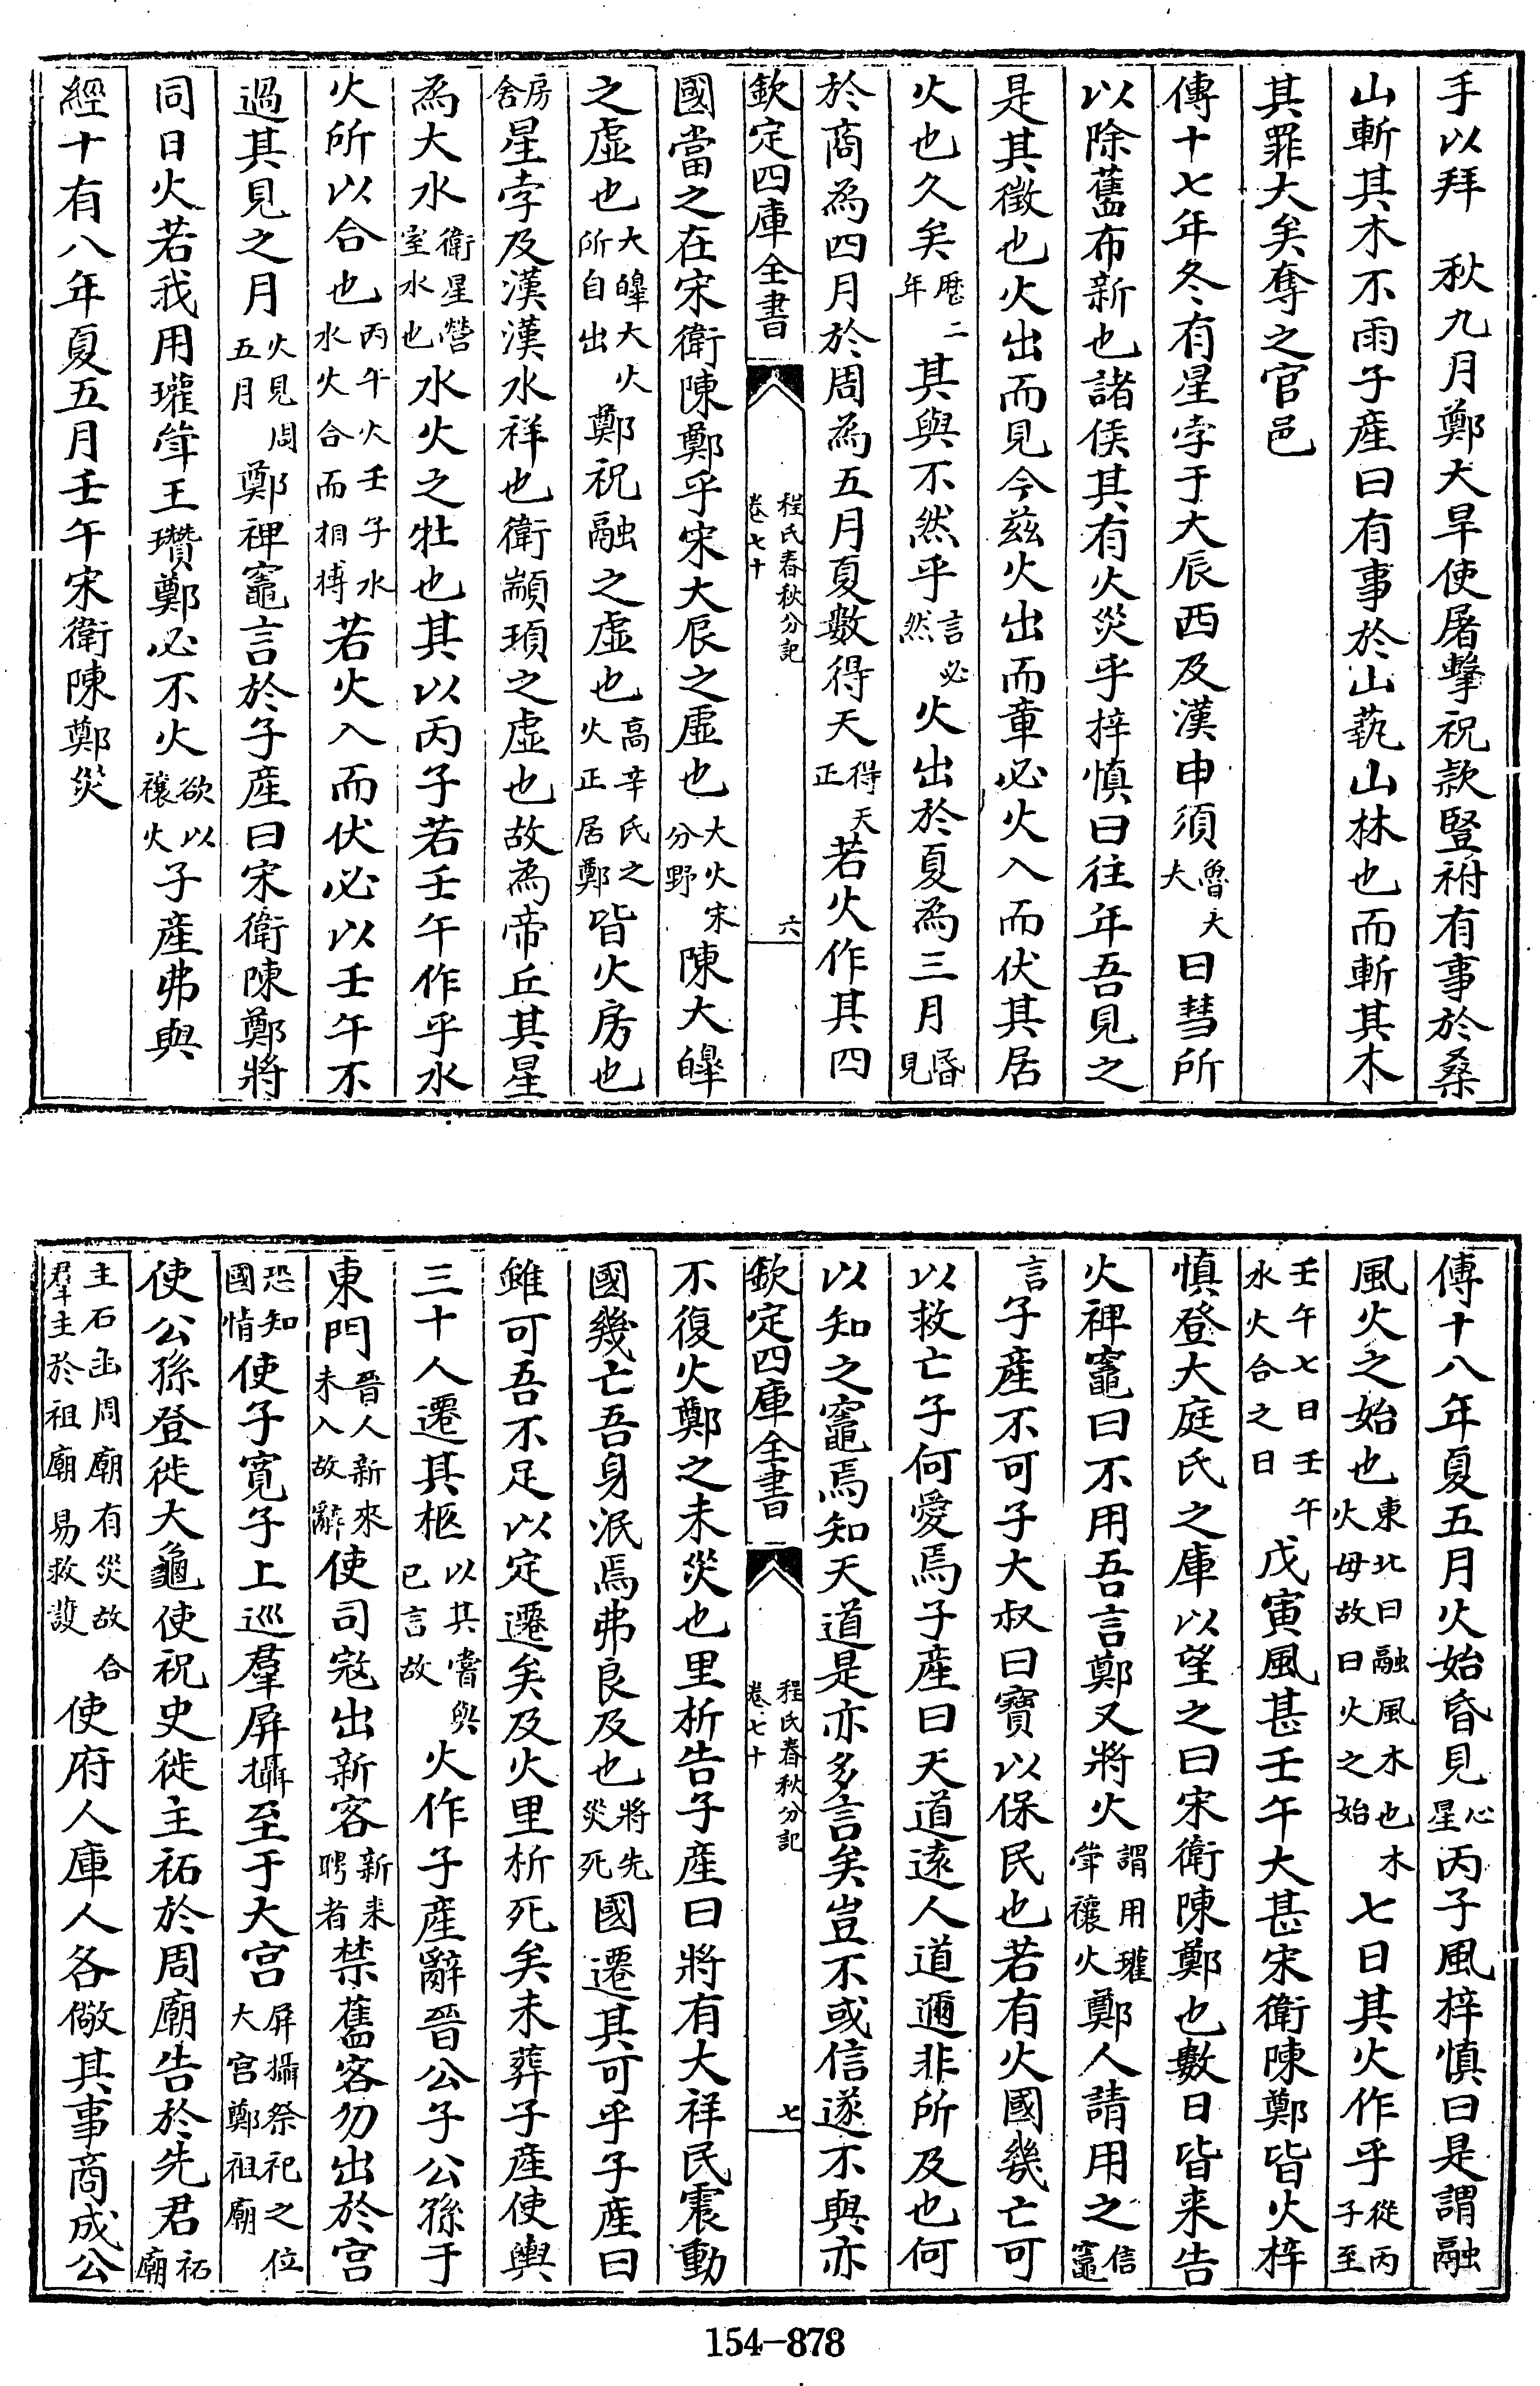 手以拜　秋九月鄭大旱使屠擊祝款豎祔有事於桑
山斬其木不雨子產曰有事於山蓺山林也而斬其木
其罪大矣奪之官邑
傳十七年冬有星孛于大辰西及漢申須魯大夫曰彗所
以除舊布新也諸侯其有火災乎梓慎曰往年吾見之
是其徵也火出而見今茲火出而章必火入而伏其居
火也久矣歷二年其與不然乎言必然火出於夏為三月昏見
於商為四月於周為五月夏數得天得天正若火作其四
欽定四庫全書
程氏春秋分記
卷七十
六
國當之在宋衛陳鄭乎宋大辰之虛也大火宋分野陳大皞
之虛也大皞大火所自出鄭祝融之虛也高辛氏之火正居鄭皆火房也
房舍星孛及漢漢水祥也衛顓頊之虛也故為帝丘其星
為大水衛星營室水也水火之牡也其以丙子若壬午作乎水
火所以合也丙午火壬子水水火合而相摶若火入而伏必以壬午不
過其見之月火見周五月鄭裨竈言於子產曰宋衛陳鄭將
同日火若我用瓘斝玉瓚鄭必不火欲以禳火子產弗與
經十有八年夏五月壬午宋衛陳鄭災
傳十八年夏五月火始昏見心星丙子風梓慎曰是謂融
風火之始也東北曰融風木也木火母故曰火之始七日其火作乎從丙子至
壬午七日壬午水火合之日戊寅風甚壬午大甚宋衛陳鄭皆火梓
慎登大庭氏之庫以望之曰宋衛陳鄭也數日皆来告
火裨竈曰不用吾言鄭又將火謂用瓘斝禳火鄭人請用之信竈
言子產不可子大叔曰寶以保民也若有火國幾亡可
以救亡子何愛焉子產曰天道遠人道邇非所及也何
以知之竈焉知天道是亦多言矣豈不或信遂不與亦
欽定四庫全書
程氏春秋分記
卷七十
七
不復火鄭之未災也里析告子產曰將有大祥民震動
國幾亡吾身泯焉弗良及也將先災死國遷其可乎子產曰
雖可吾不足以定遷矣及火里析死矣未葬子產使輿
三十人遷其柩以其嘗與己言故火作子產辭晉公子公孫于
東門晉人新來未入故辭使司寇出新客新来聘者禁舊客勿出於宫
恐知國情使子寬子上巡羣屏攝至于大宫屏攝祭祀之位大宫鄭祖廟
使公孫登徙大龜使祝史徙主祏於周廟告於先君祏廟
主石函周廟有災故合羣主於祖廟易救護使府人庫人各儆其事商成公
154-878